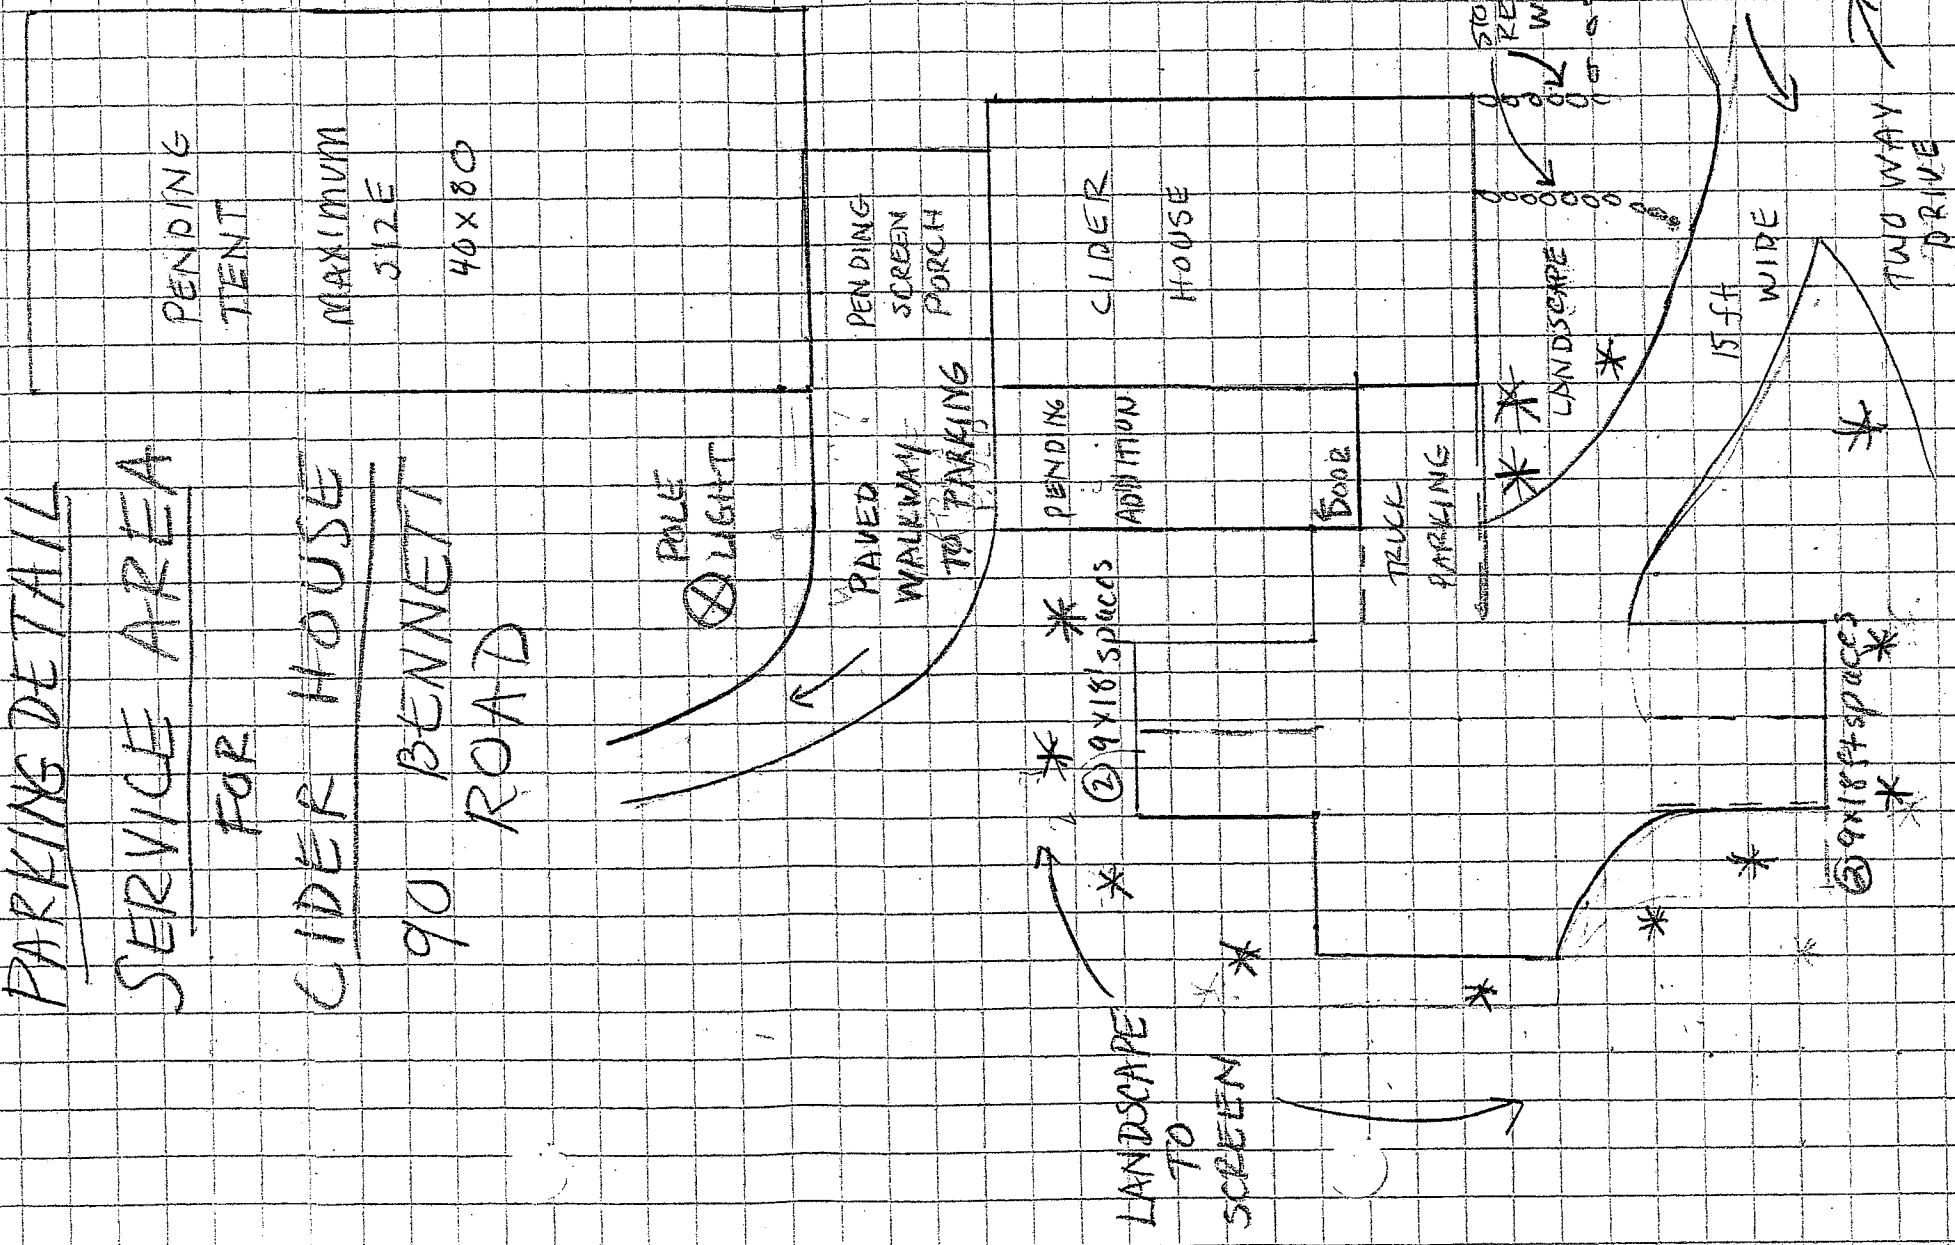 PARKING DETAIL
SERVICE AREA
FOR
CIDER HOUSE
90 BENNETT
ROAD
PENDING
TENT
MAXIMUM
SIZE
40 X 80
POLE
LIGHT
PENDING
SCREEN
PORCH
PAVED
WALKWAY
TO PARKING
CIDER
HOUSE
PENDING
ADDITION
DOOR
TRUCK
PARKING
② 9 X 18' spaces
LANDSCAPE
TO
SCREEN
LANDSCAPE
15 ft
WIDE
TWO WAY
DRIVE
② 9x18ft spaces